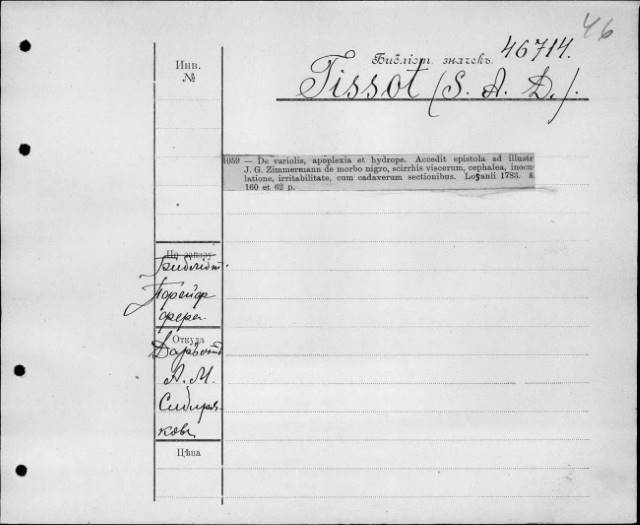 46
46714.
Инв.
№
Библіот. значекъ
Tissot (S. A. D.).
1059 — De variolis, apoplexia et hydrope. Accedit epistola ad illustr
J. G. Zimmermann de morbo nigro, scirrhis viscerum, cephalea, inocu
latione, irritabilitate, cum cadaverum sectionibus. Losanii 1783. 8.
160 et 62 p.
По заказу
Библіот.
Порейф
фера.
Откуда
Даръ отъ
А. М.
Сибиря-
кова
Цѣна